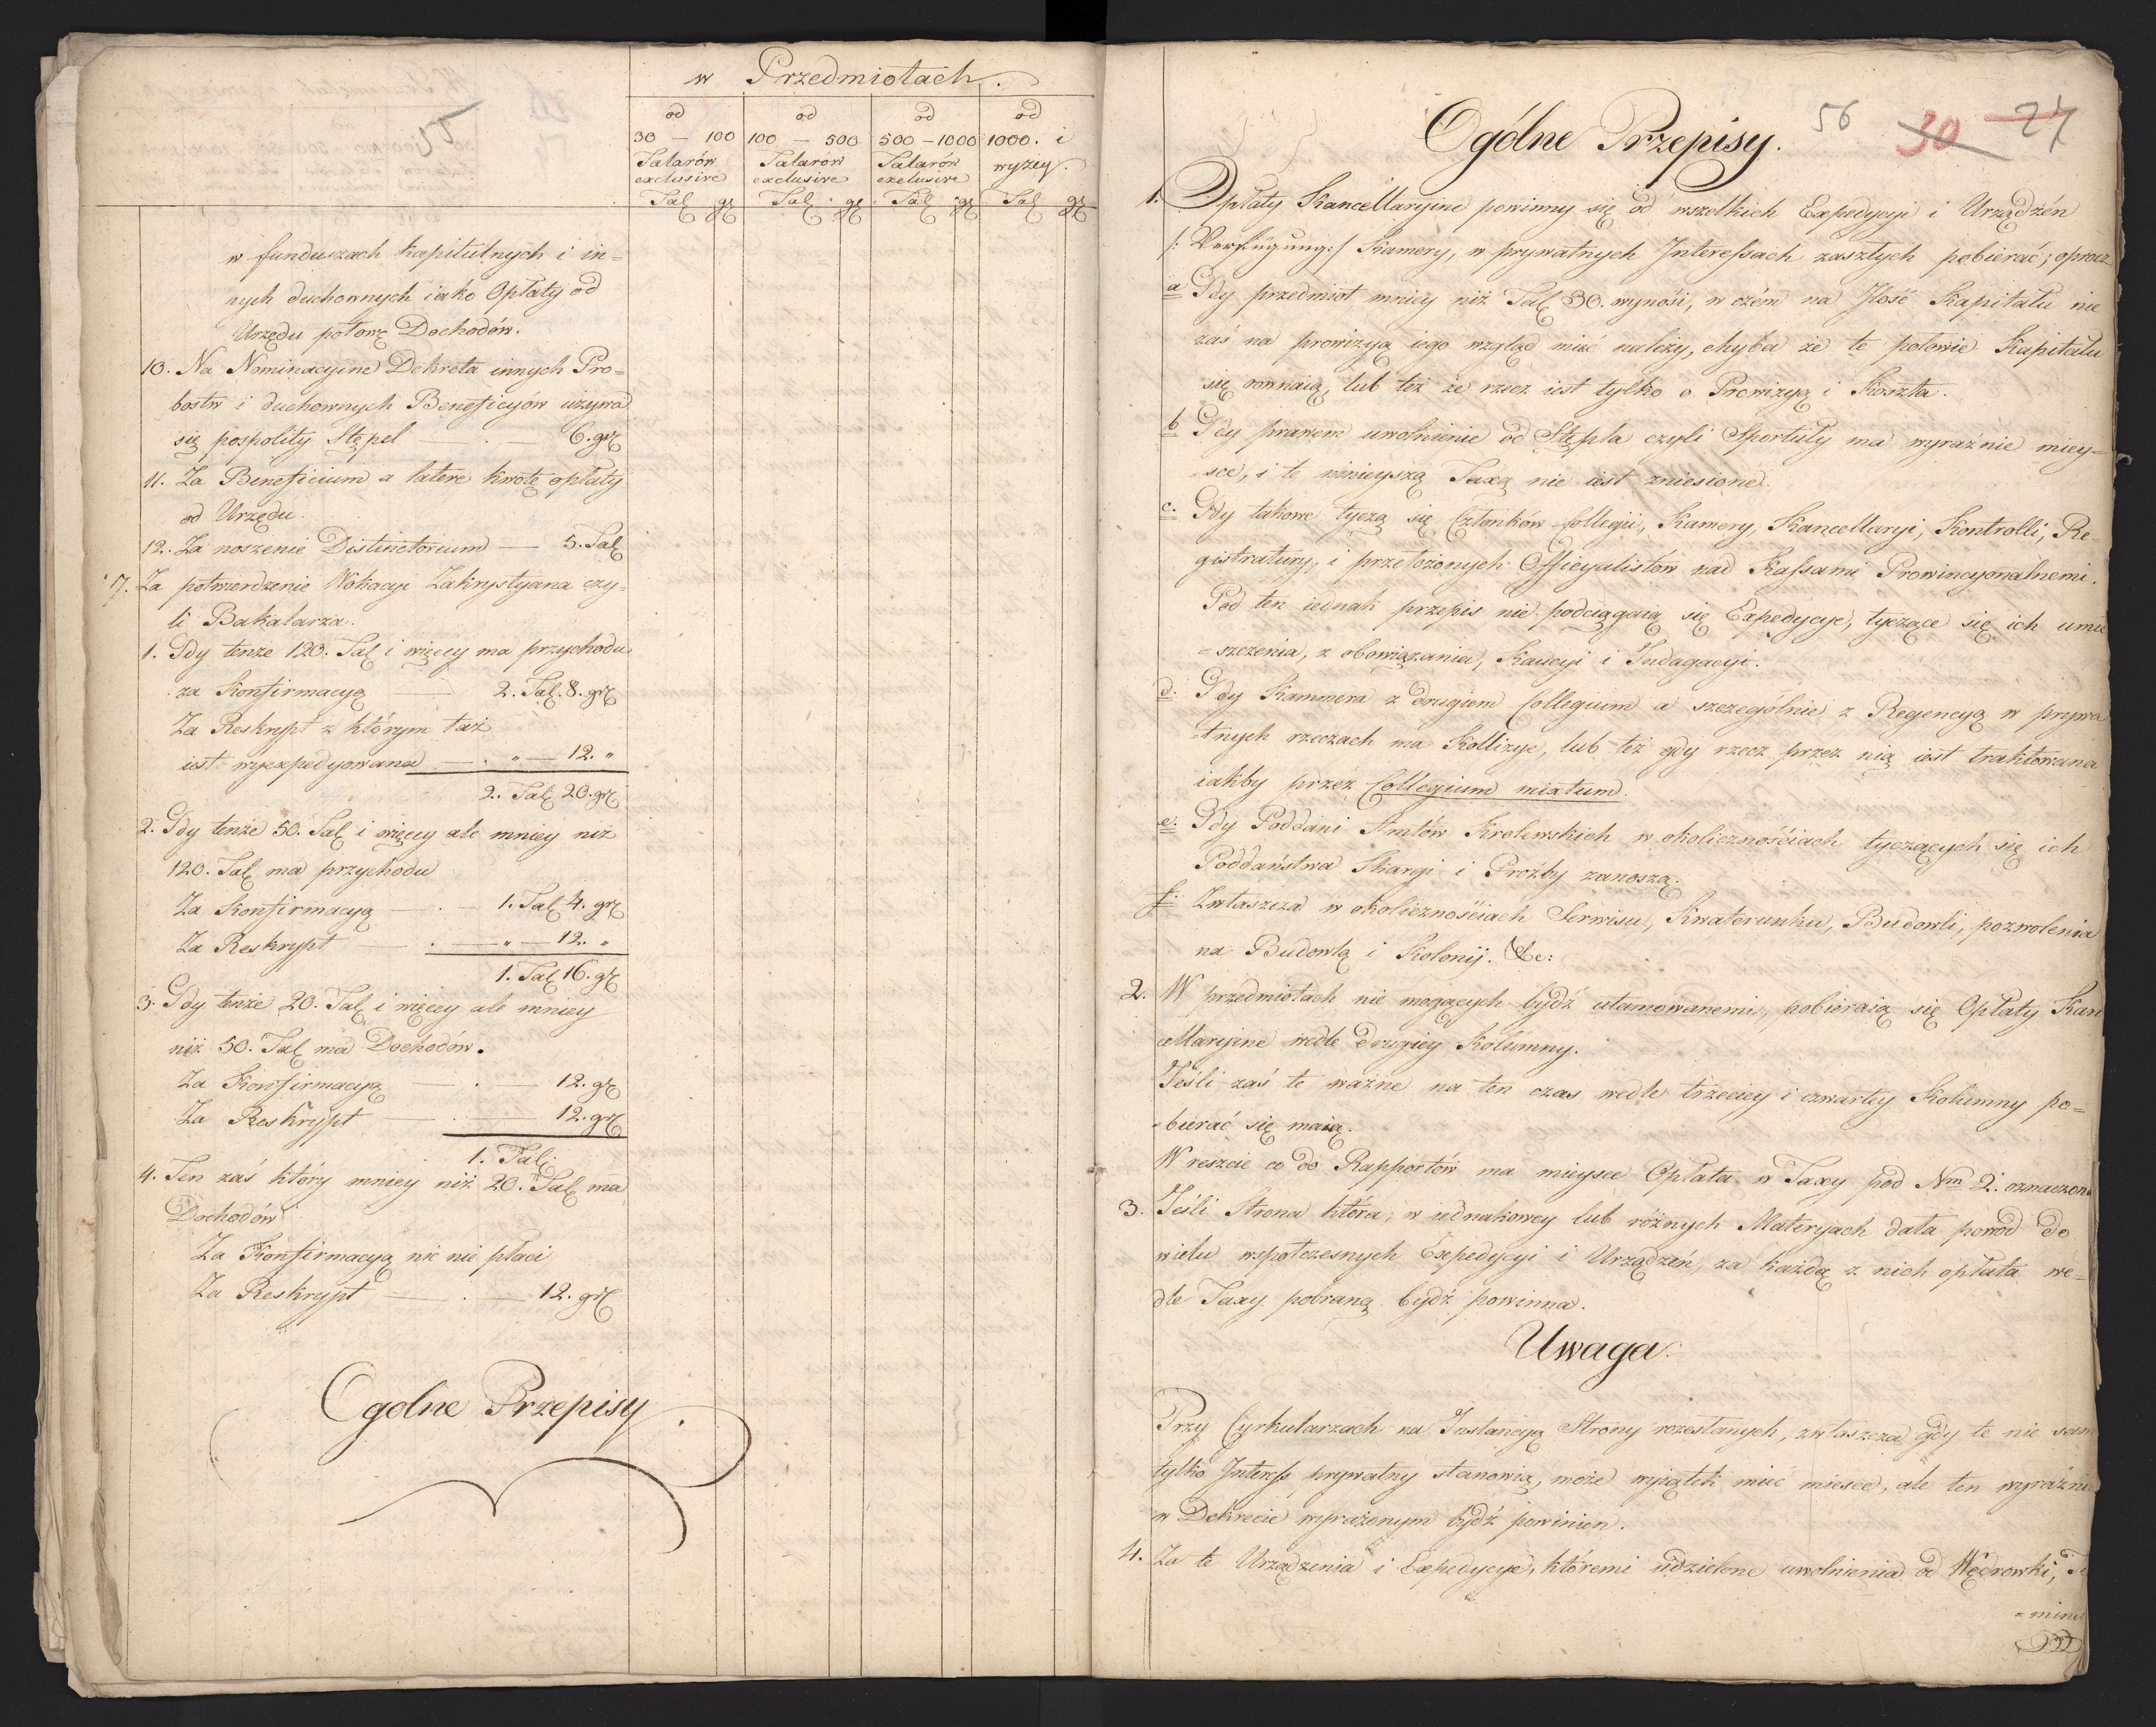 w Przedmiotach.
od od od od
30 — 100 100 — 500 500 — 1000 1000. i
Talarów Talarów Talarów wyżey.
exclusive exclusive exclusive
Tal gr Tal gr Tal gr Tal gr
55
w funduszach kapitulnych i in=
nych duchownych iako Opłaty od
Urzędu połowę Dochodów.
10. Na Nominacyine Dekreta innych Pro=
bostw i duchownych Beneficyów używa
się pospolity Stępel — . — 6. gr
11. Za Beneficium a latere kwotę opłaty
od Urzędu.
12. Za noszenie Distinctorium — 5. Tal
7. Za potwierdzenie Wokacyi Zakrystyana czy=
li Bakalarza.
1. Gdy tenże 120. Tal i więcey ma przychodu
za Konfirmacyą — 2. Tal. 8. gr
Za Reskrypt z którym taż
iest wyexpedyowana — . „ — 12. „
2. Tal 20. gr
2. Gdy tenże 50. Tal i więcey ale mniey niż
120. Tal ma przychodu
Za Konfirmacyą — . — 1. Tal 4. gr
Za Reskrypt — . — „ — 12. „
1. Tal 16. gr
3. Gdy tenże 20. Tal i więcey ale mniey
niż 50. Tal ma Dochodów.
Za Konfirmacyą — . — 12. gr
Za Reskrypt — . — 12. gr
1. Tal
4. Ten zaś który mniey niż 20. Tal ma
Dochodów
Za Konfirmacyą nic nie płaci
Za Reskrypt — . — 12. gr
Ogolne Przepisy.
Ogólne Przepisy.
56 30 27
1. Opłaty Kancellaryine powinny się od wszelkich Expedycyi i Urządzén
/: Verfügung:/ Kamery, w prywatnych Interessach zaszłych pobierać; oprocz
a Gdy przedmiot mniey niż Tal 30. wynośi, w czém na Ilość Kapitału nie
zaś na prowizyą iego wzgląd mieć należy, chyba że te połowie Kapitału
się rownaią, lub też że rzecz iest tylko o Prowizyą i Koszta.
b Gdy prawem uwolnienie od Stępla czyli Sportuły ma wyraznie miey=
sce, i te ninieyszą Taxą nie iest zniesione.
c. Gdy takowe tyczą się Członków Collegii, Kamery, Kancellaryi, Kontrolli, Re=
gistratury, i przełożonych Officyalistów nad Kassami Prowincyonalnemi.
Pod ten iednak przepis nie podciągaią się Expedycye, tyczące się ich umie
=szczenia, z obowiązania, Kaucyi i Indagacyi.
d. Gdy Kammera z drugiem Collegium a szczególnie z Regencyą w prywa
=tnych rzeczach ma Kollizye, lub też gdy rzecz przez nią iest traktowana
iakby przez Collegium mixtum.
e. Gdy Poddani Amtów Krolewskich w okolicznościach tyczących się ich
Poddaństwa Skargi i Prózby zanoszą.
f. Zwłaszcza w okolicznościach Serwisu, Kwaterunku, Budowli, pozwolenia
na Budowlą i Kolonij. &c:
2. W przedmiotach nie mogących bydź utamowanemi, pobieraią się Opłaty Kan
cellaryine wedle drugiey Kolumny.
Jeśli zaś te ważne na ten czas wedle trzeciey i czwartey Kolumny po=
=bierać się maią.
W reszcie co do Rapportów ma mieysce Opłata w Taxy pod Nm 2. oznaczona
3. Jeśli Strona która, w iednakowey lub różnych Materyach dała powód do
wielu wspołczesnych Expedycyi i Urządzeń, za każdą z nich opłata we=
dle Taxy pobraną bydź powinna.
Uwaga.
Przy Cyrkularzach na Instancyą Strony rozesłanych, zwłaszcza gdy te nie sam
tylko Interess prywatny stanowią, może wyiątek mieć miesce, ale ten wyraźnie
w Dekrecie wyrażonym bydź powinien.
4. Za te Urządzenia i Expedycye, któremi udzielone uwolnienia od Wędrowki,